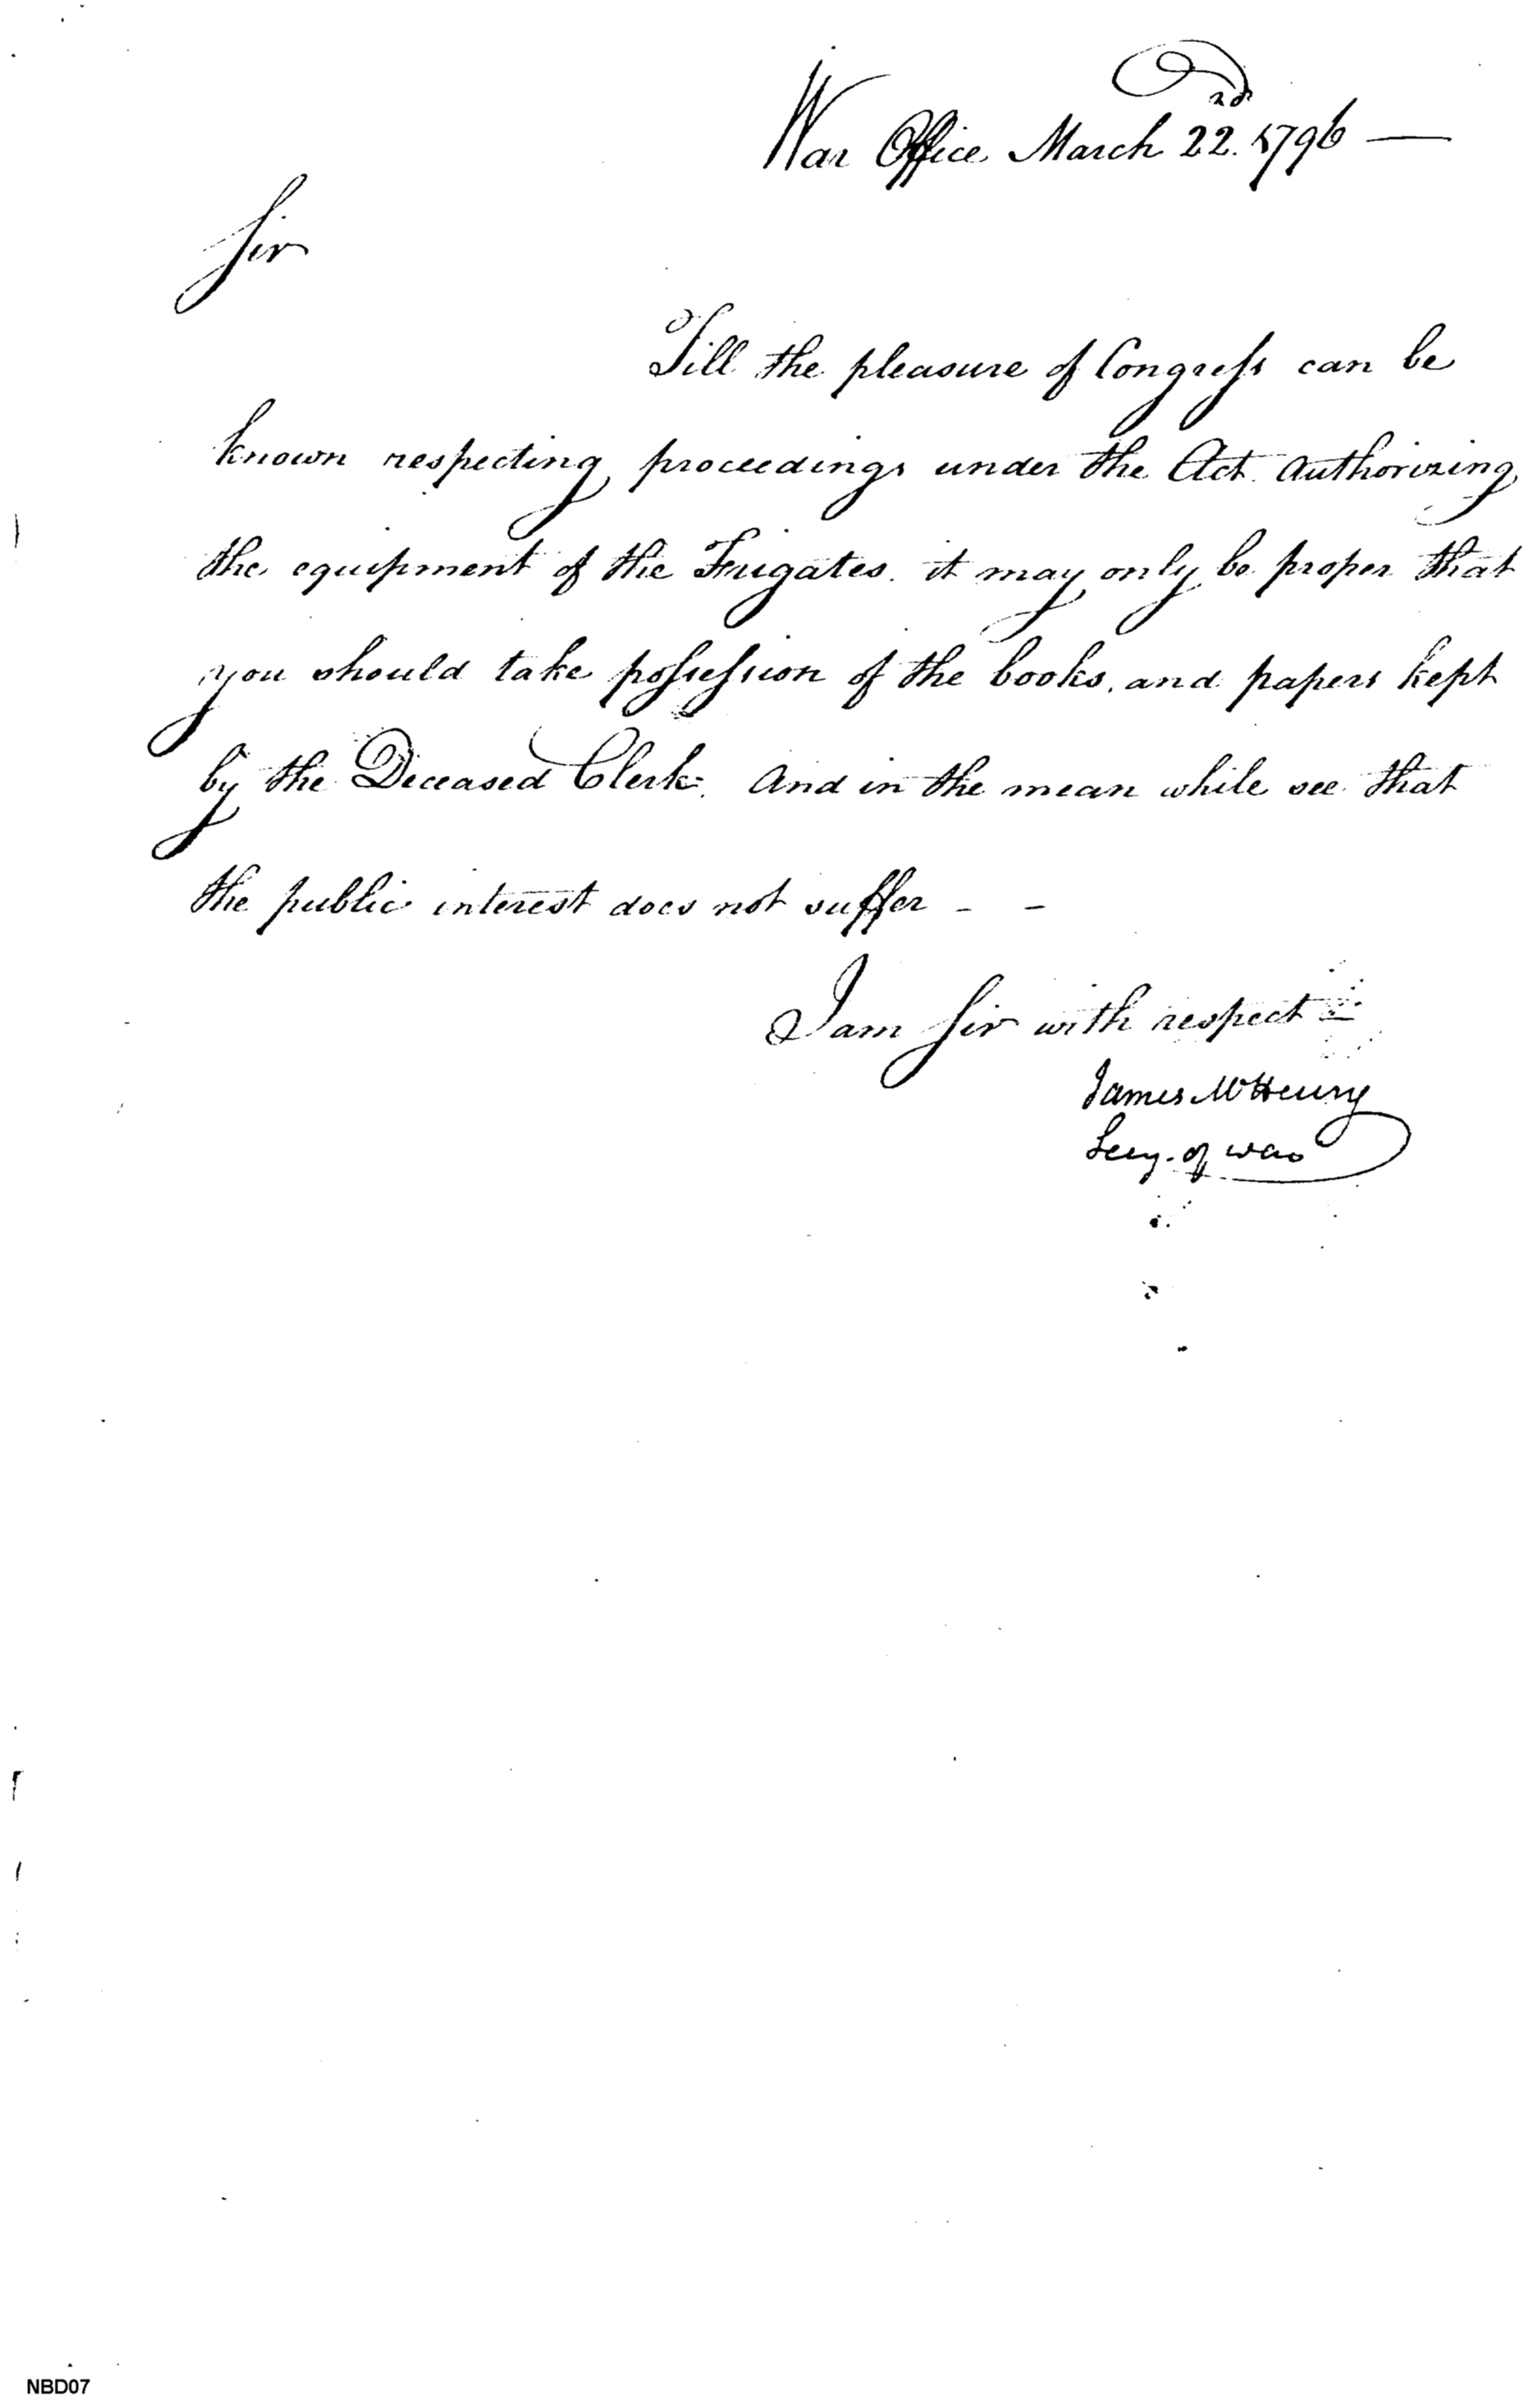 War Office March 22.nd 1796 —
Sir
Till the pleasure of Congress can be
known respecting proceedings under the Act authorizing
the equipment of the Frigates. it may only be proper that
you should take possession of the books, and papers kept
by the Deceased Clerk. And in the mean while see that
the public interest does not suffer - -
I am Sir with respect
James McHenry
Secy. of war
NBD07